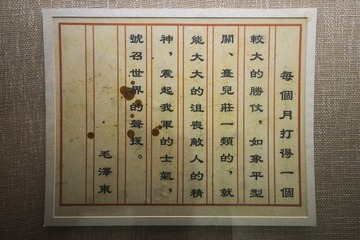 每個月打得一個
較大的勝仗，如象平型
關、臺兒莊一類的，就
能大大的沮喪敵人的精
神，震起我軍的士氣，
號召世界的聲援。
毛澤東